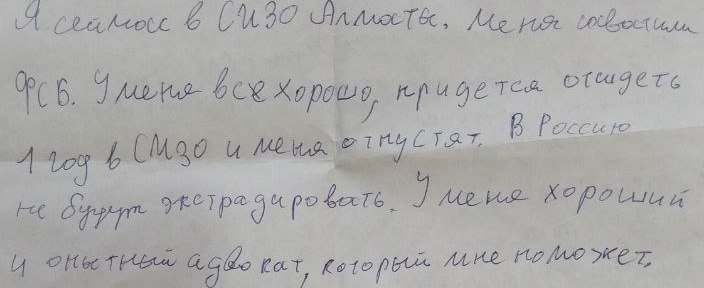 Я сейчас в СИЗО Алматы. Меня схватили
ФСБ. У меня все хорошо, придется отсидеть
1 год в СИЗО и меня отпустят. В Россию
не будут экстрадировать. У меня хороший
и опытный адвокат, который мне поможет.